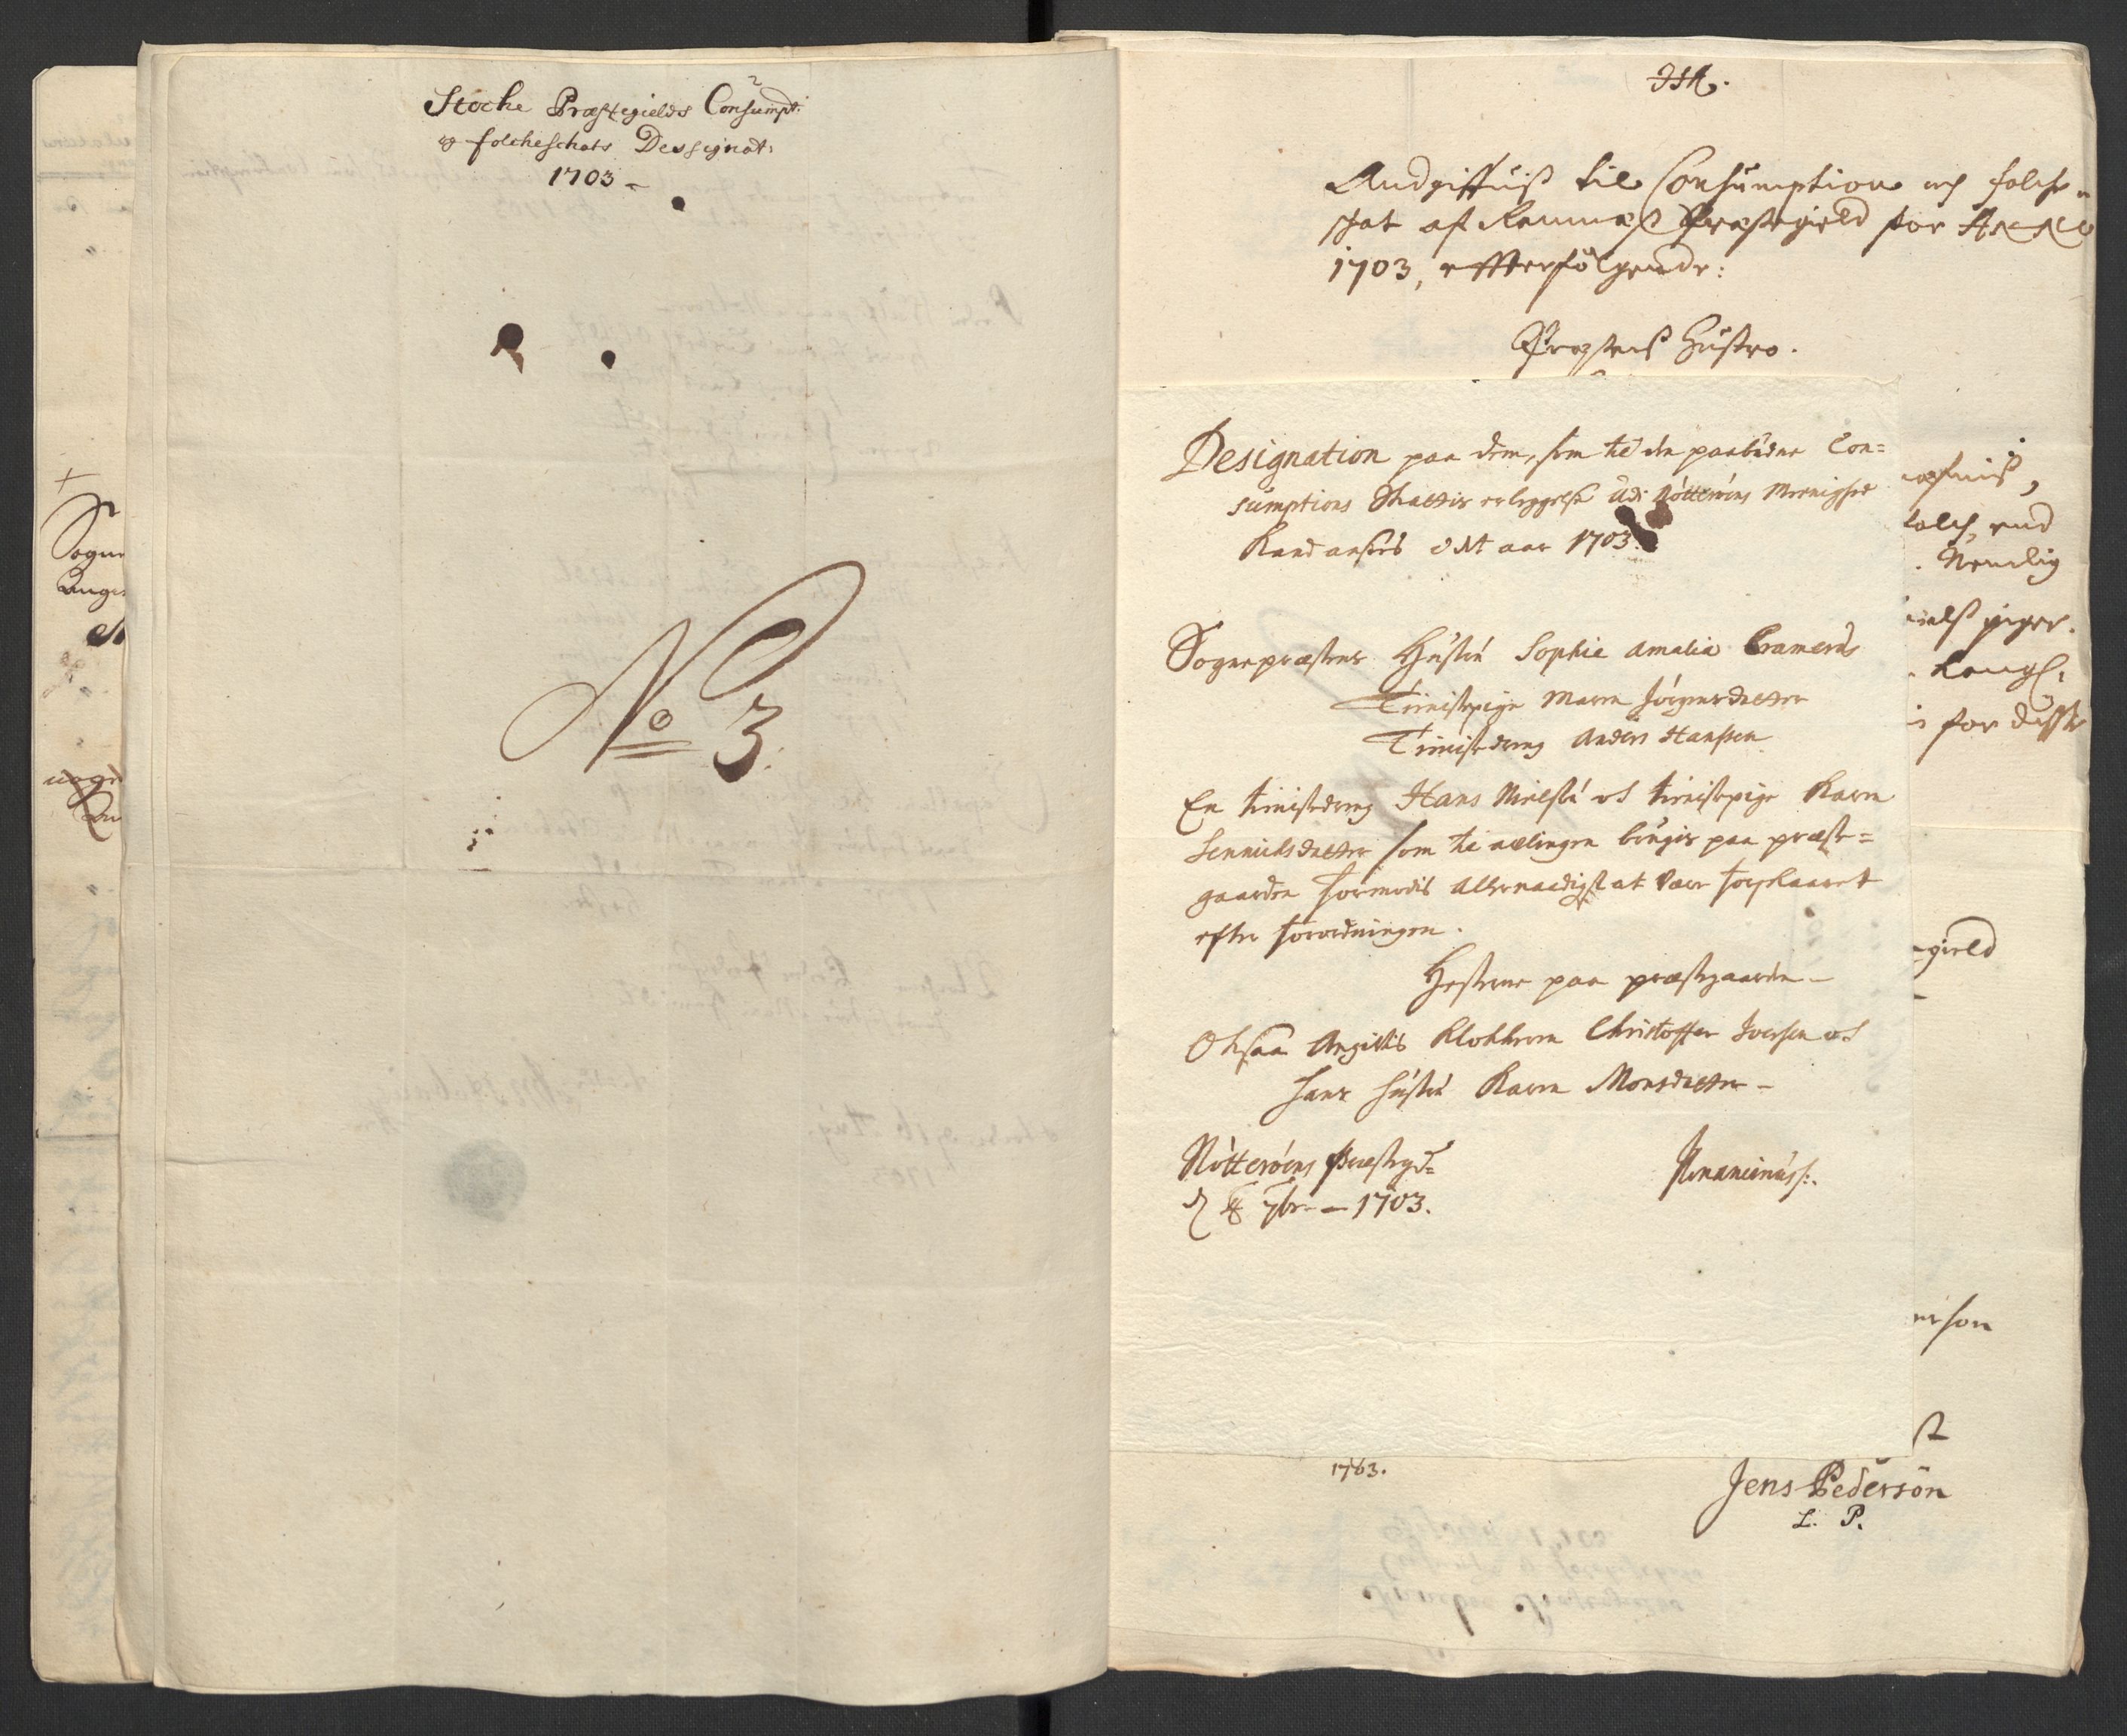 Stocke Præstegields Consumpt:
og folcheschats Dessignat:
1703 -
No 3.
Sogne
Angi
JSA.
Andgiffuiß til Consumption och folche
skat af Ramnæß Præstegield for Anno
1703, effterfölgende:
Præstens Hustro.
Designation paa dem, som til den paabudne Con=
sumptions Skattis erleggelse udi Nötteröens Meenighed
Kand ansees dette aar 1703.
Sognepræstens Hustru Sophie Amalia Cramers
Tienistepige Maren Jörgensdatter
Tienistedreng Anders Hanssen
En tienistedreng Hans Nielsen och tienistepige Karen
Hennichsdatter som til avlingen brugis paa præste=
gaarden formodis allernaadigst at være forskaanet
efter forordningen.
Hestene paa præstegaarden -
Ocksaa Angivis Klockeren Christoffer Iversen och
hans hustru Karen Monsdatter -
Nötteröens Præstegd=
d 7br - 1703.
folch, end
. Nemlig
piger.
Kongl:
for disse
gield
1703.
Jens Pedersön
L. P.